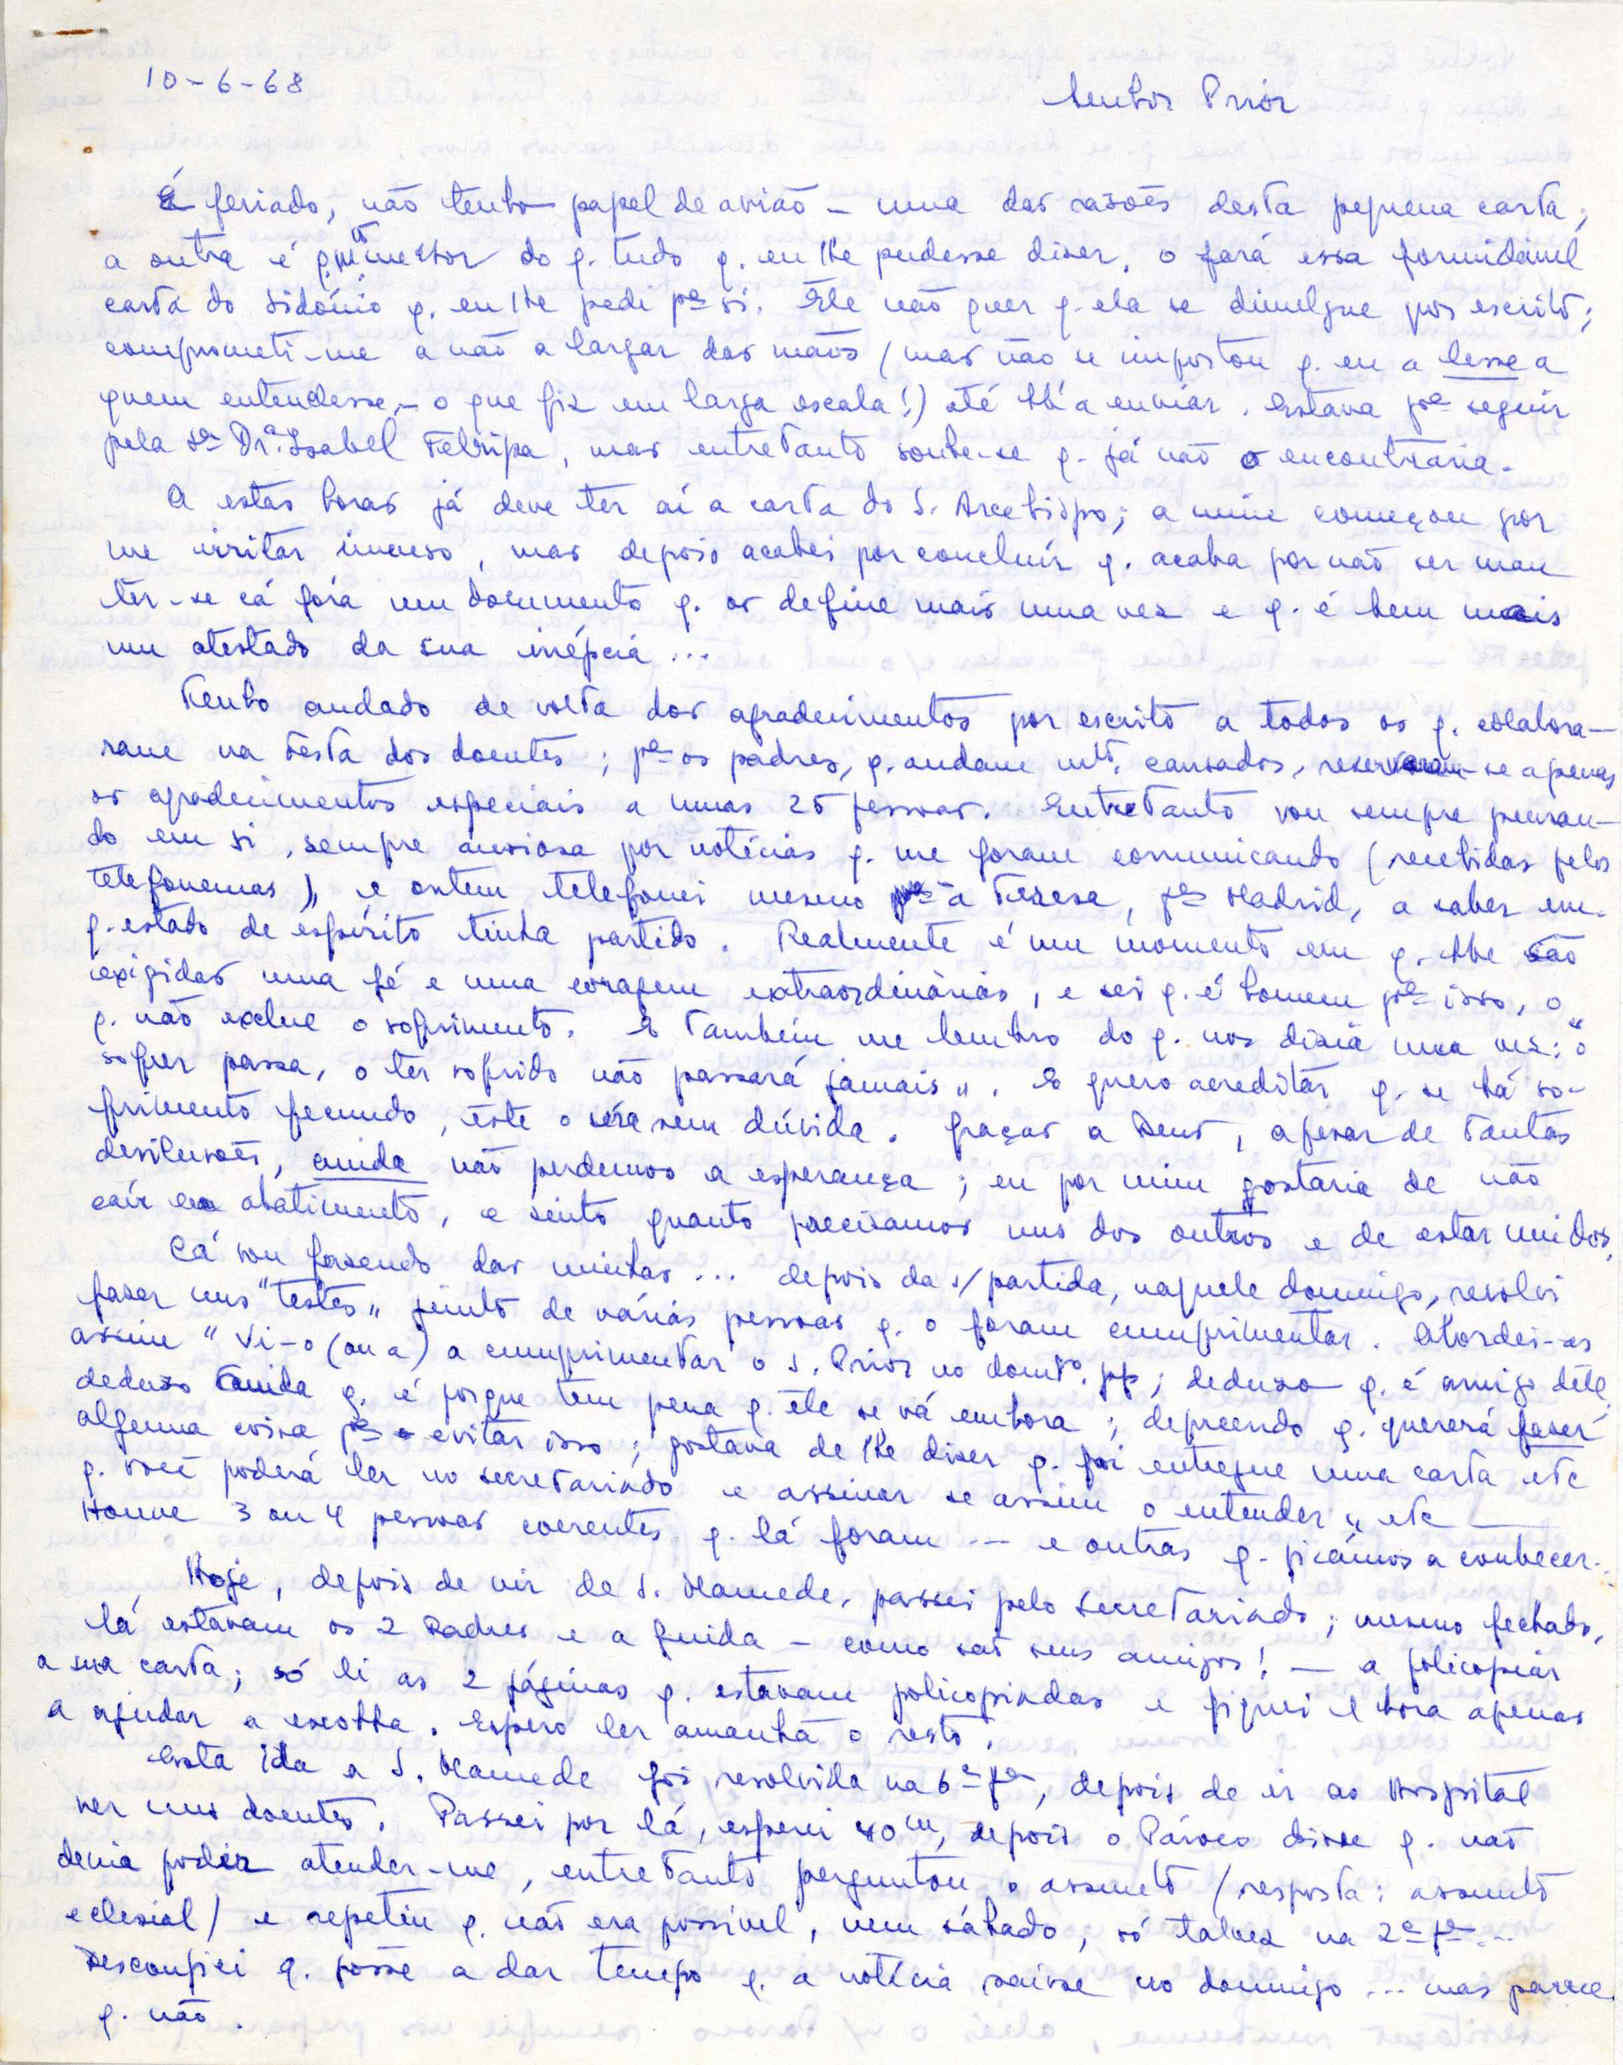 10-6-68
Senhor Prior
É feriado, não tenho papel de avião - uma das razões desta pequena carta;
a outra é q. mtº melhor do q. tudo q. eu lhe pudesse dizer, o fará essa formidável
carta do Sidónio q. eu lhe pedi pª si. Ele não quer q. ela se divulgue por escrito;
comprometi-me a não a largar das mãos (mas não se importou q. eu a lesse a
quem entendesse, - o que fiz em larga escala!) até lh'a enviar. Estava pª seguir
pela Sª Drª. Isabel Feltripa, mas entretanto soube-se q. já não o encontraria.
A estas horas já deve ter aí a carta do S. Arcebispo; a mim começou por
me irritar imenso, mas depois acabei por concluír q. acaba por não ser mau
ter-se cá fora um documento q. os define mais uma vez e q. é bem mais
um atestado da sua inépcia ...
Tenho andado de volta dos agradecimentos por escrito a todos os q. colabora-
ram na Festa dos doentes; pª os padres, q. andam mtº. cansados, reservaram-se apenas
os agradecimentos especiais a umas 25 pessoas. Entretanto vou sempre pensan-
do em si, sempre ansiosa por notícias q. me foram comunicando (recebidas pelos
telefonemas), e ontem telefonei mesmo à Teresa, pª Madrid, a saber em
q. estado de espírito tinha partido. Realmente é um momento em q. lhe são
exigidas uma fé e uma coragem extraordinárias, e sei q. é homem pª isso, o
q. não exclue o sofrimento. E também me lembro do q. nos dizia uma vez: "o
sofrer passa, o ter sofrido não passará jamais". E quero acreditar q. se há so-
frimento fecundo, êste o será sem dúvida. Graças a Deus, apesar de tantas
desilusões, ainda não perdemos a esperança; eu por mim gostaria de não
caír em abatimento, e sinto quanto precisamos uns dos outros e de estar unidos.
Cá vou fazendo das minhas ... depois da s/ partida, naquele domingo, resolvi
fazer uns "testes" junto de várias pessoas q. o foram cumprimentar. Abordei-as
assim "Vi-o (ou a) a cumprimentar o S. Prior no domº. pp; deduzo q. é amigo dêle,
deduzo ainda q. é porque tem pena q. êle se vá embora; depreendo q. quererá fazer
alguma coisa pª evitar isso; gostava de lhe dizer q. foi entregue uma carta etc
q. você poderá ler no secretariado e assinar se assim o entender" etc
Houve 3 ou 4 pessoas coerentes q. lá foram --- e outras q. ficámos a conhecer...
Hoje, depois de vir de S. Mamede, passei pelo Secretariado; mesmo fechado,
lá estavam os 2 Padres e a Guida - como são seus amigos! - a policopiar
a sua carta; só li as 2 páginas q. estavam policopiadas e fiquei 1 hora apenas
a ajudar a escolha. Espero ler amanhã o resto.
Esta ida a S. Mamede foi resolvida na 6ª fª, depois de ir ao Hospital
ver uns doentes. Passei por lá, esperei 40m, depois o Pároco disse q. não
devia poder atender-me, entretanto perguntou o assunto (resposta: assunto
eclesial) e repetiu q. não era possível, nem sábado, só talvez na 2ª fª...
Desconfiei q. fôsse a dar tempo q. a notícia saísse no domingo ... mas parece
q. não.